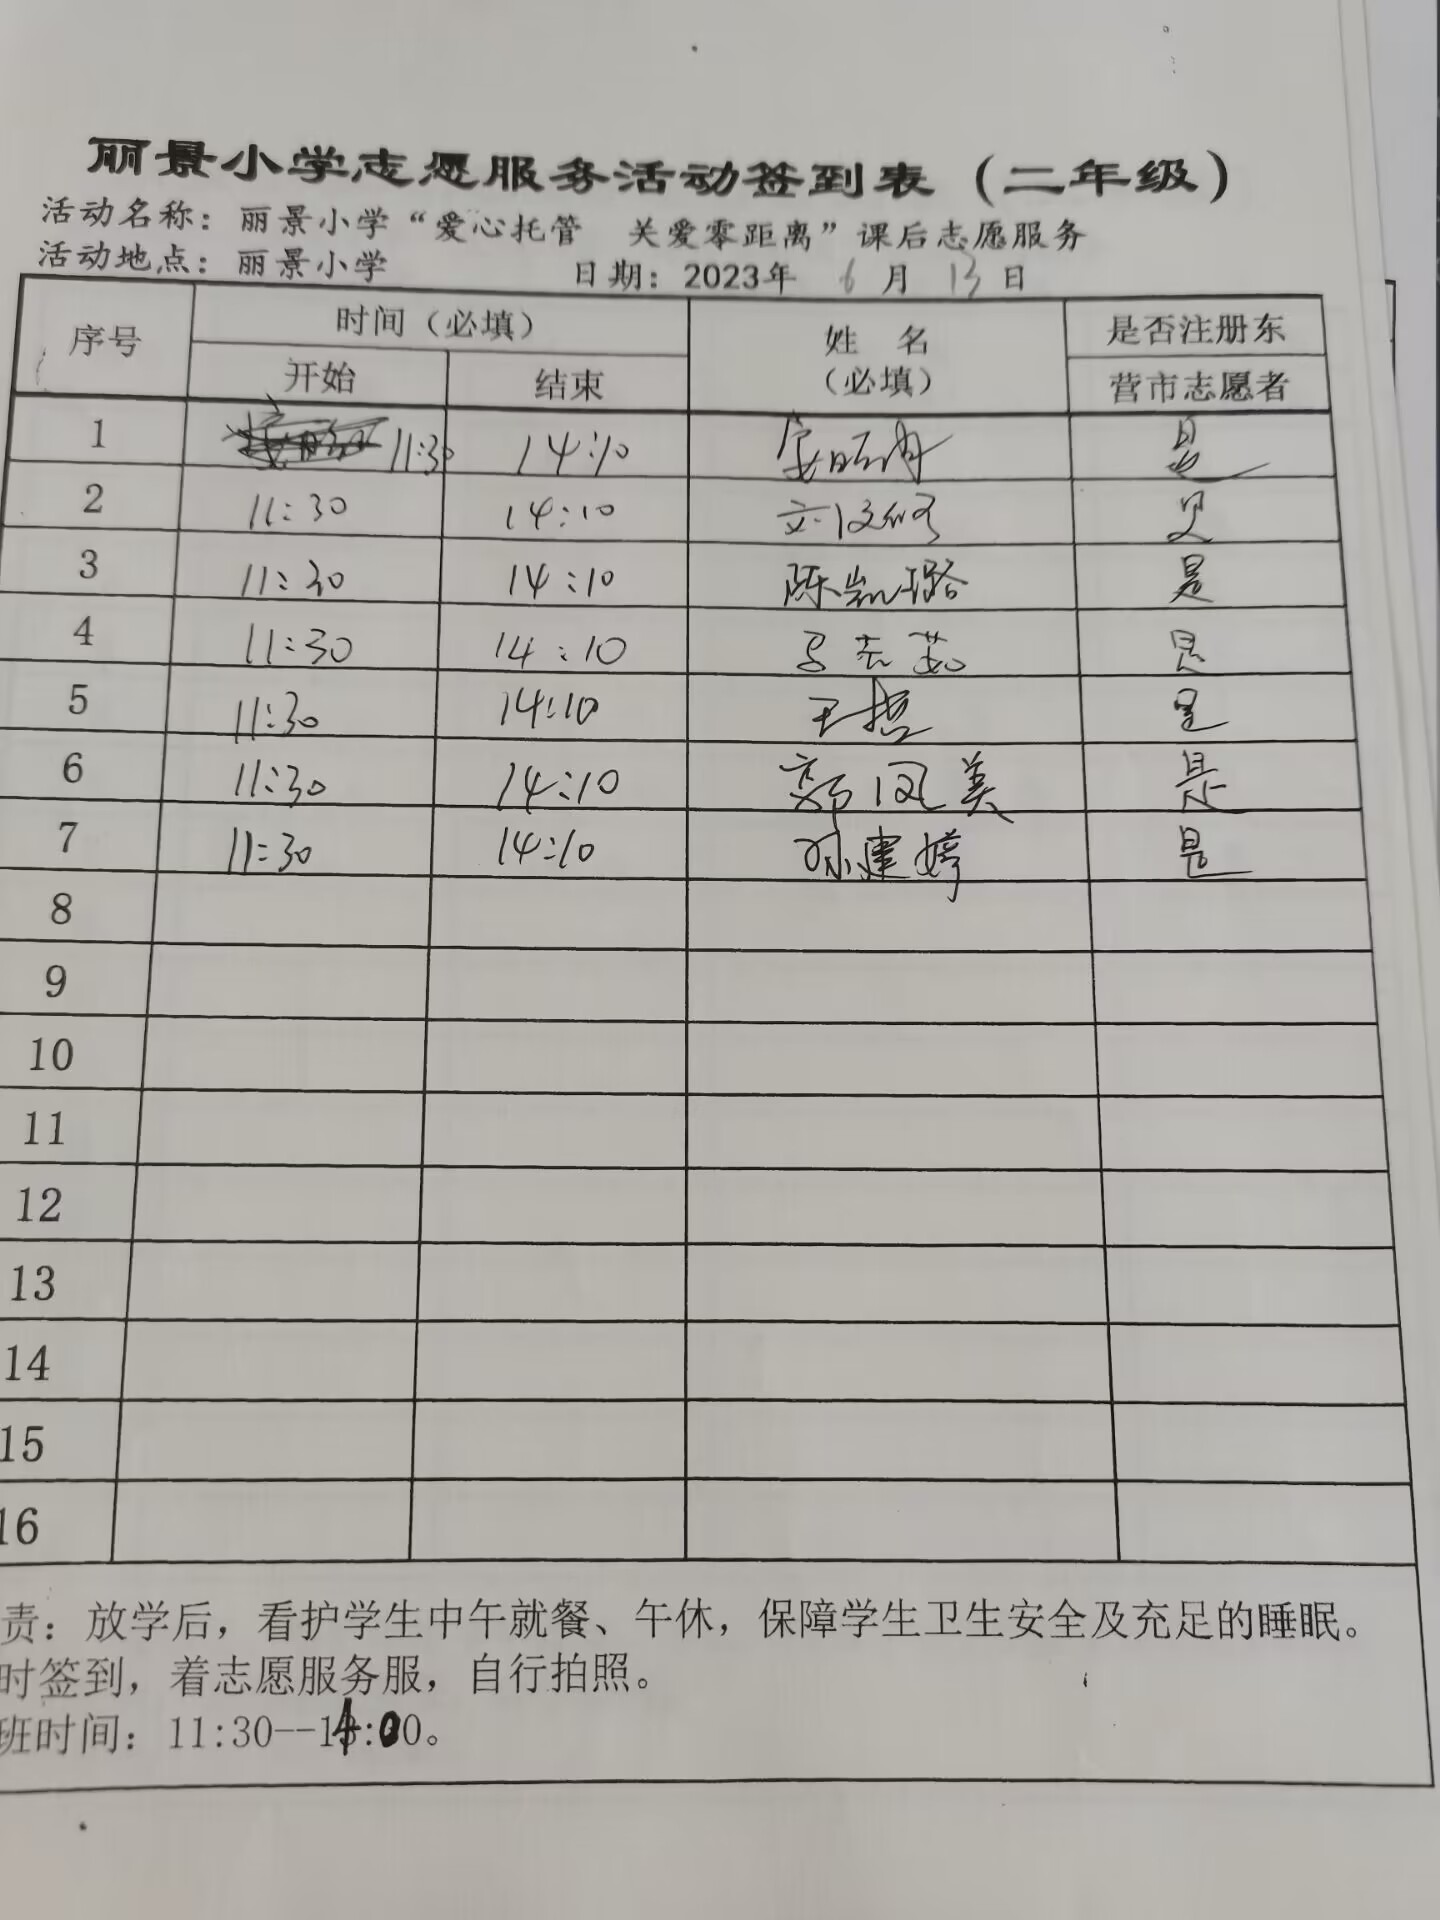 丽景小学志愿服务活动签到表（二年级）
活动名称：丽景小学“爱心托管 关爱零距离”课后志愿服务
活动地点：丽景小学 日期：2023年 6 月 13 日
序号 时间（必填） 姓 名 是否注册东
开始 结束 （必填） 营市志愿者
1 11:30 14:10 是
2 11:30 14:10 是
3 11:30 14:10 陈凯璐 是
4 11:30 14:10 是
5 11:30 14:10 是
6 11:30 14:10 郭凤美 是
7 11:30 14:10 孙建婷 是
8
9
10
11
12
13
14
15
16
责：放学后，看护学生中午就餐、午休，保障学生卫生安全及充足的睡眠。
时签到，着志愿服务服，自行拍照。
班时间：11:30--14:00。